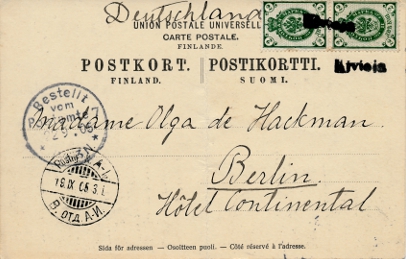 Deutschland
UNION POSTALE UNIVERSELLE
CARTE POSTALE.
FINLANDE.
POSTKORT. POSTIKORTTI.
FINLAND. SUOMI.
Kivioja
Bestellt
vom
Postamte
Madame Olga de Hackman.
Berlin.
Hôtel Continental
19.IX 05
В. ОТД А-И.
Sida för adressen - Osoitteen puoli. - Côté réservé à l'adresse.